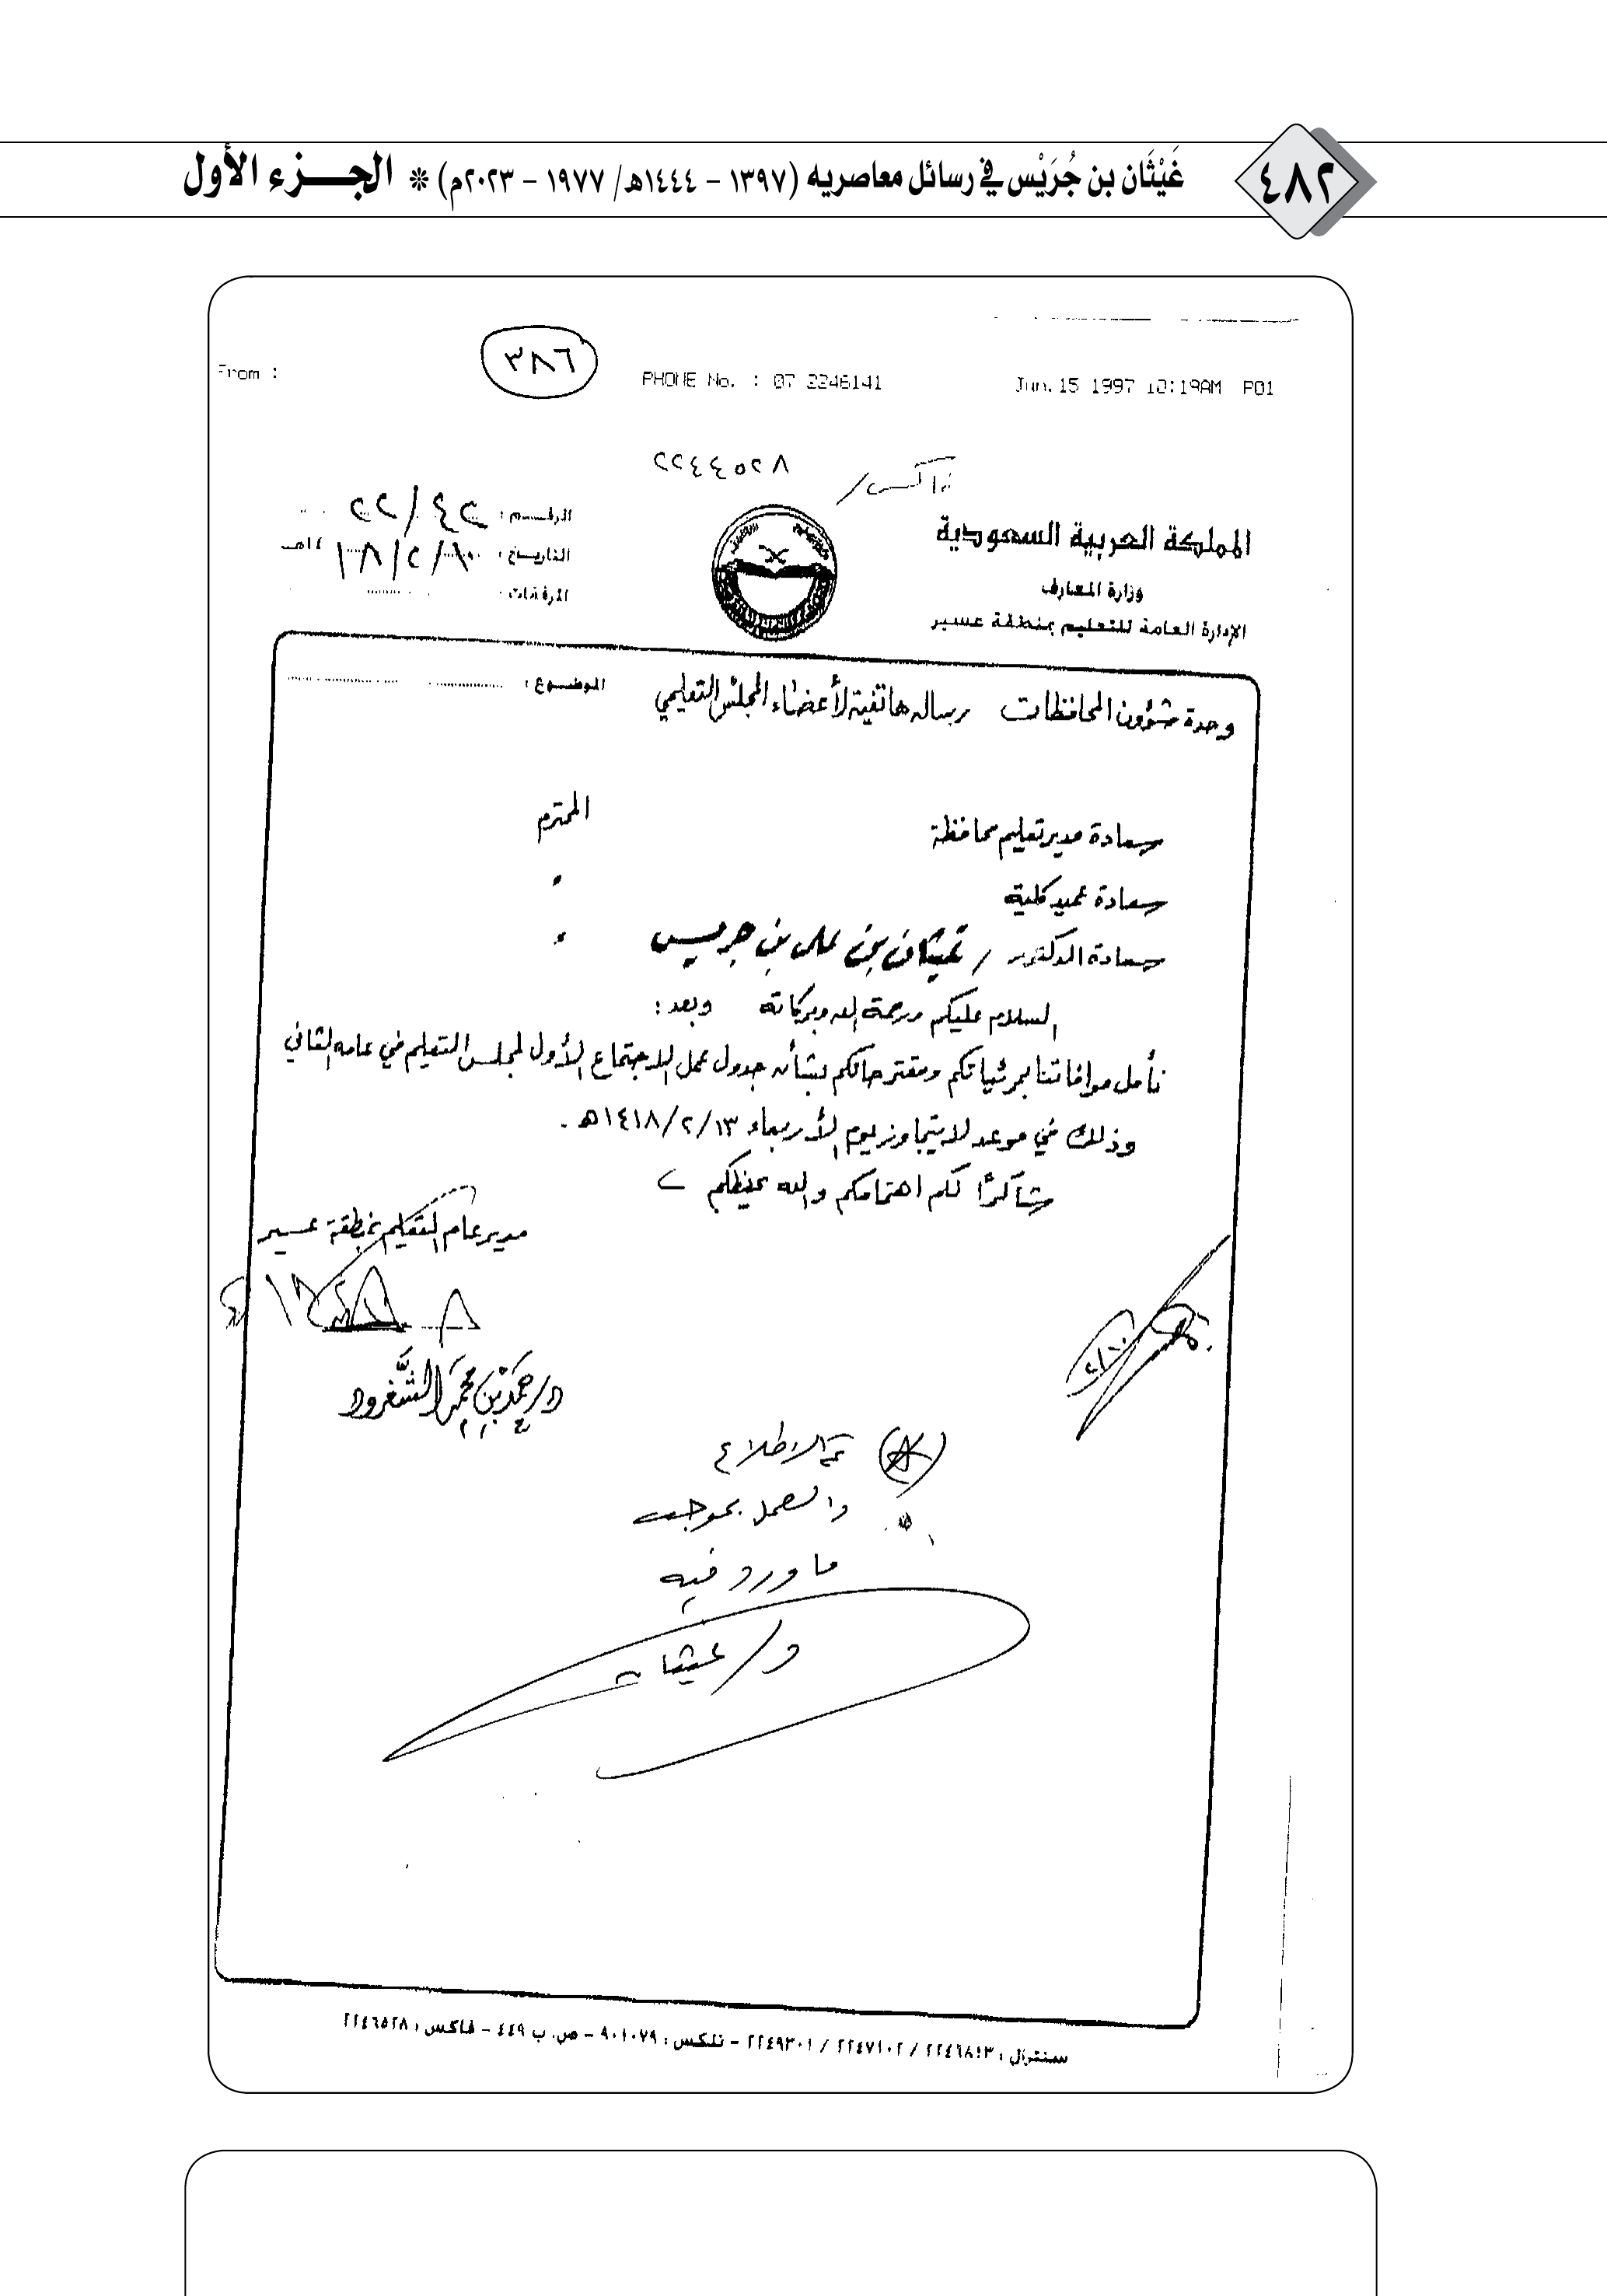 ٤٨٢
غَيْثَان بن جُرَيْس في رسائل معاصريه (١٣٩٧ - ١٤٤٤هـ/ ١٩٧٧ - ٢٠٢٣م) * الجزء الأول
From :
٣٨٦
PHONE No. : 07 2246141
Jun.15 1997 10:19AM P01
فاكس/ ٨٢٥٤٤٢٢
المملكة العربية السعودية
وزارة المعارف
الإدارة العامة للتعليم بمنطقة عسير
الرقم :
التاريخ :
المرفقات :
الموضوع :
وحدة شؤون المحافظات رساله هاتفية لأعضاء المجلس التعليمي
سعادة مدير تعليم محافظة المحترم
سعادة عميد كلية
سعادة الدكتور / غيثان بن علي بن جريس
السلام عليكم ورحمة الله وبركاته وبعد :
نأمل موافاتنا بمرئياتكم ومقترحاتكم بشأن جدول عمل الاجتماع الأول لمجلس التعليم في عامه الثاني
وذلك في موعد لا يتجاوز يوم الأربعاء ١٤١٨/٢/١٣هـ .
شاكرًا لكم اهتمامكم والله يحفظكم
مدير عام التعليم بمنطقة عسير
د/ حمد بن محمد الشغرود
٢/١٠
الاطلاع
والعمل بموجب
ما ورد فيه
د/ غيثان
سنترال : ٢٢٤٦٨١٣ / ٢٢٤٧١٠٢ / ٢٢٤٩٣٠١ - تلكس : ٩٠١٠٧٩ - ص. ب ٤٤٩ - فاكس : ٢٢٤٦٥٢٨